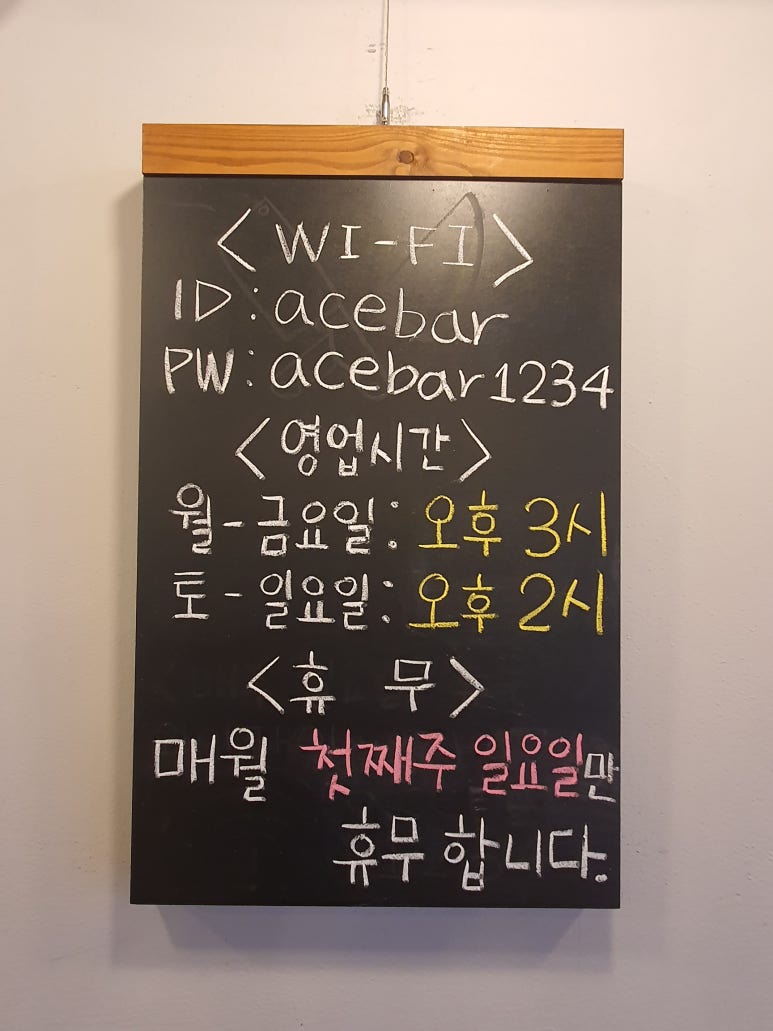 <WI-FI>
ID: acebar
PW: acebar1234
<영업시간>
월-금요일: 오후 3시
토-일요일: 오후 2시
<휴 무>
매월 첫째주 일요일만
휴무 합니다.